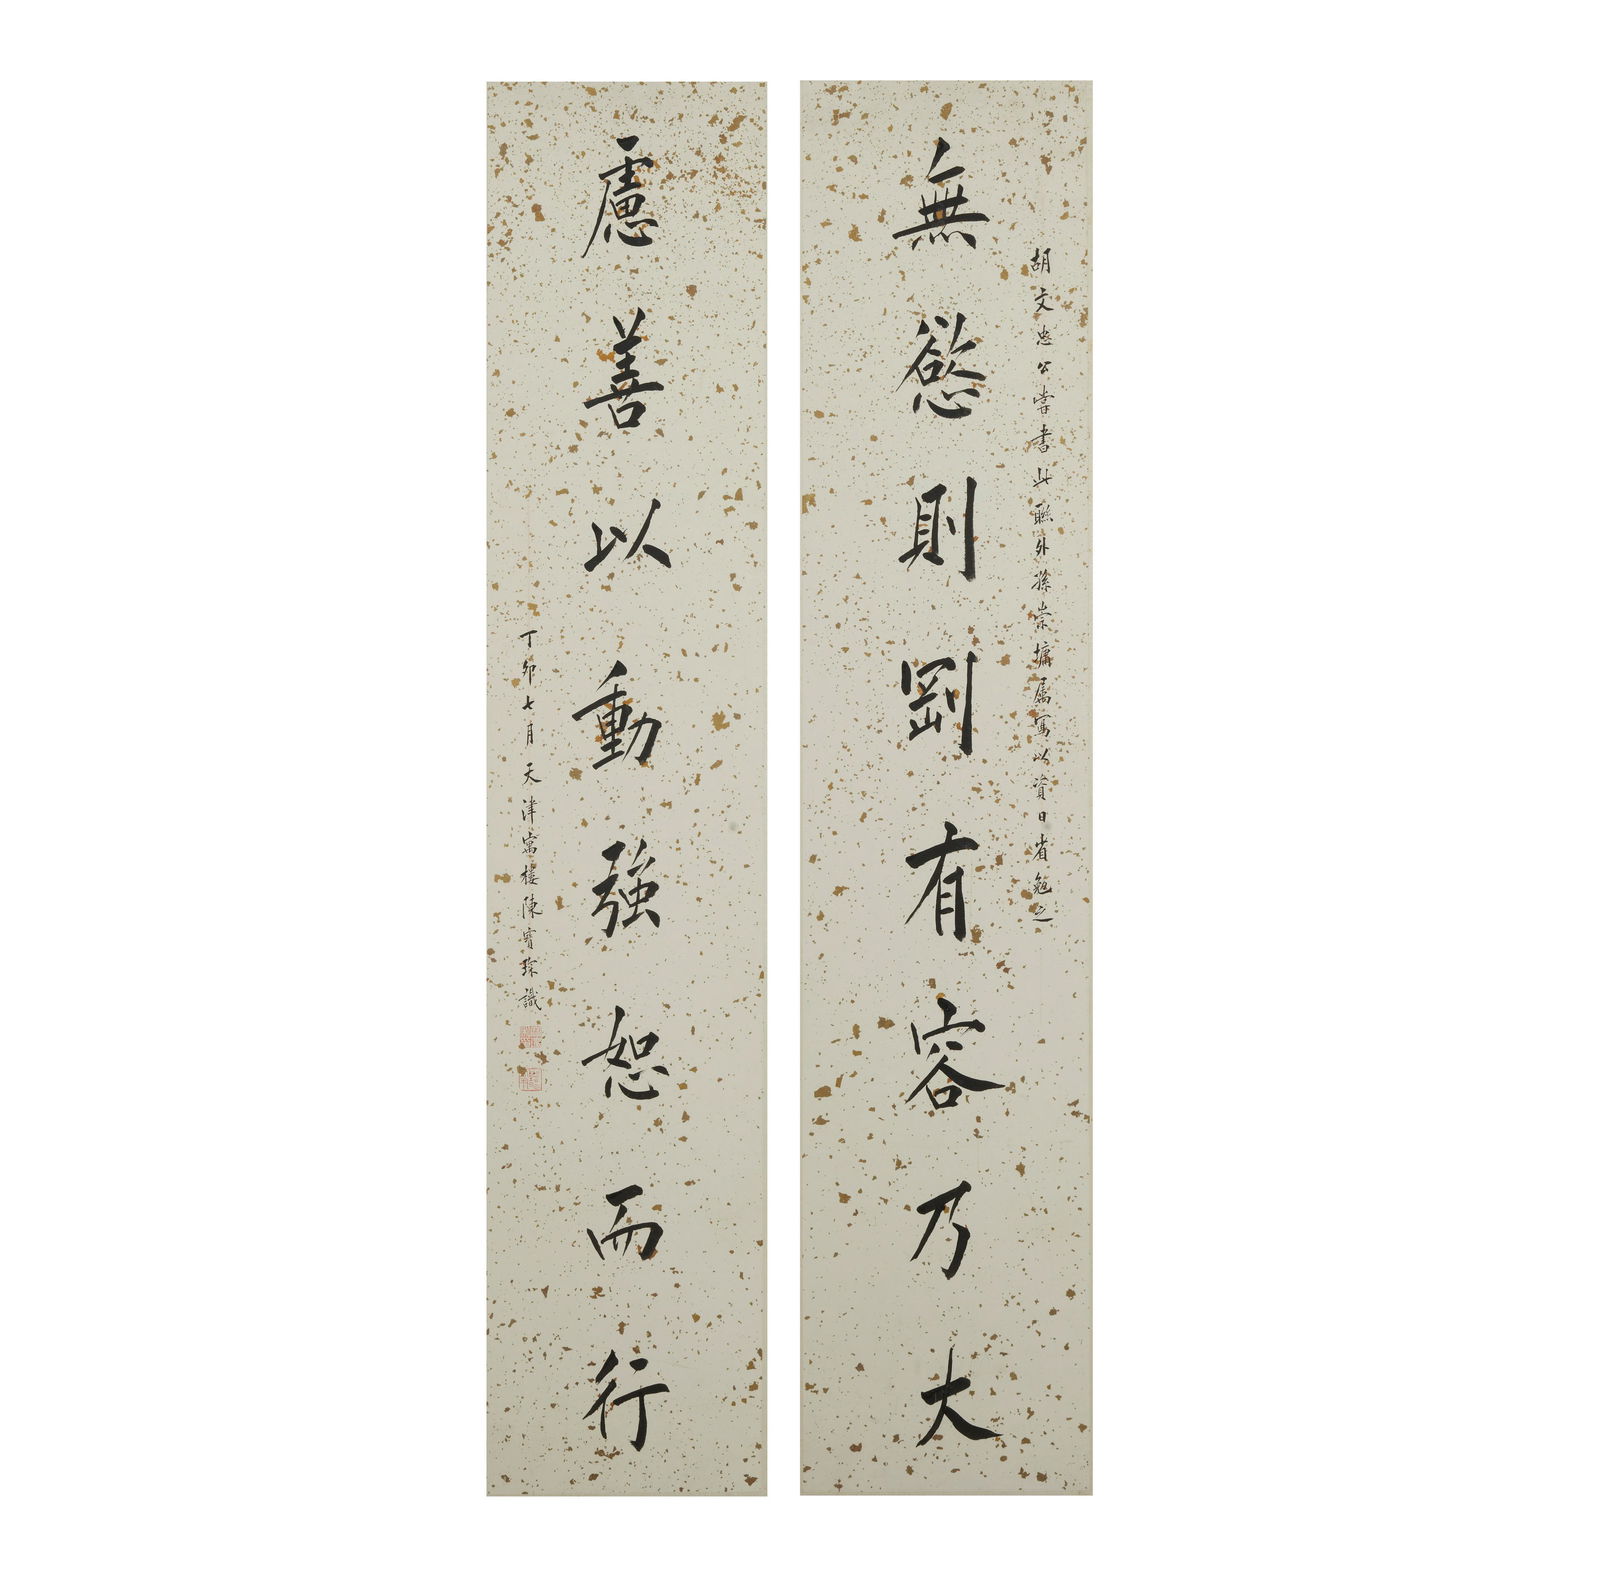 胡文忠公嘗書此聯外孫崇墉屬寫以資日省勉之
無慾則剛有容乃大
慮善以動強恕而行
丁卯七月天津寓樓陳寶琛識